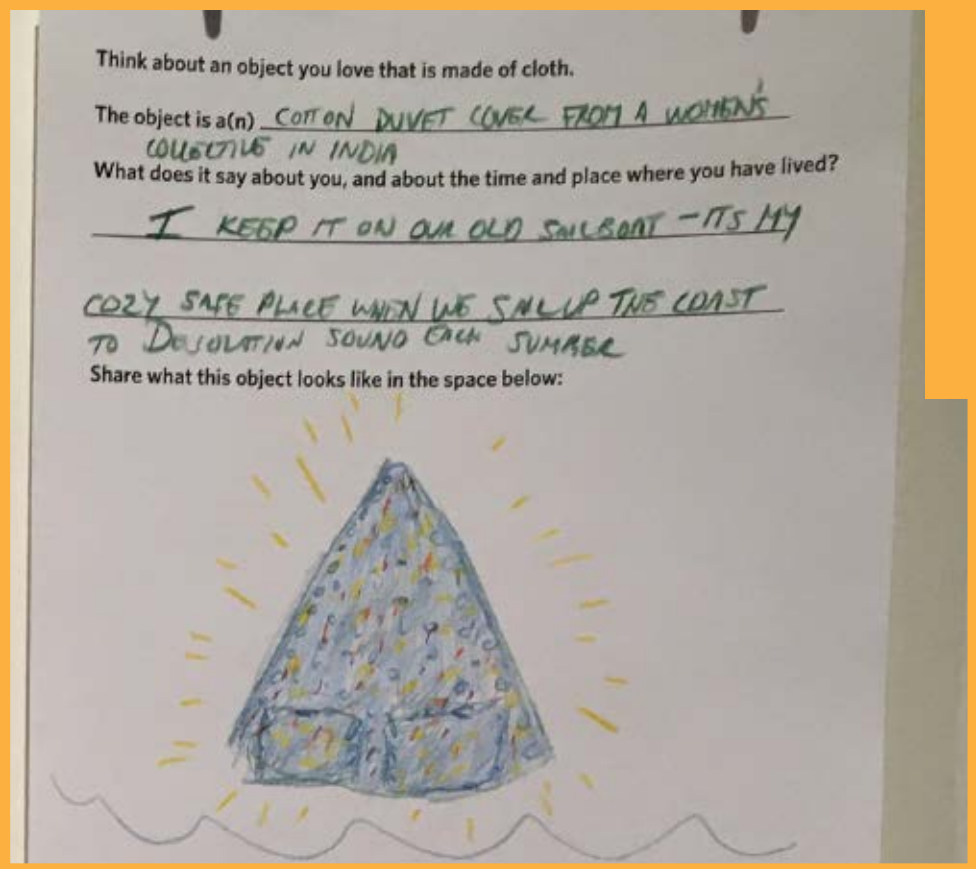 Think about an object you love that is made of cloth.
The object is a(n) COTTON DUVET COVER FROM A WOMEN'S
COLLECTIVE IN INDIA
What does it say about you, and about the time and place where you have lived?
I KEEP IT ON OUR OLD SAILBOAT - ITS MY
COZY SAFE PLACE WHEN WE SAIL UP THE COAST
TO DESOLATION SOUND EACH SUMMER
Share what this object looks like in the space below: